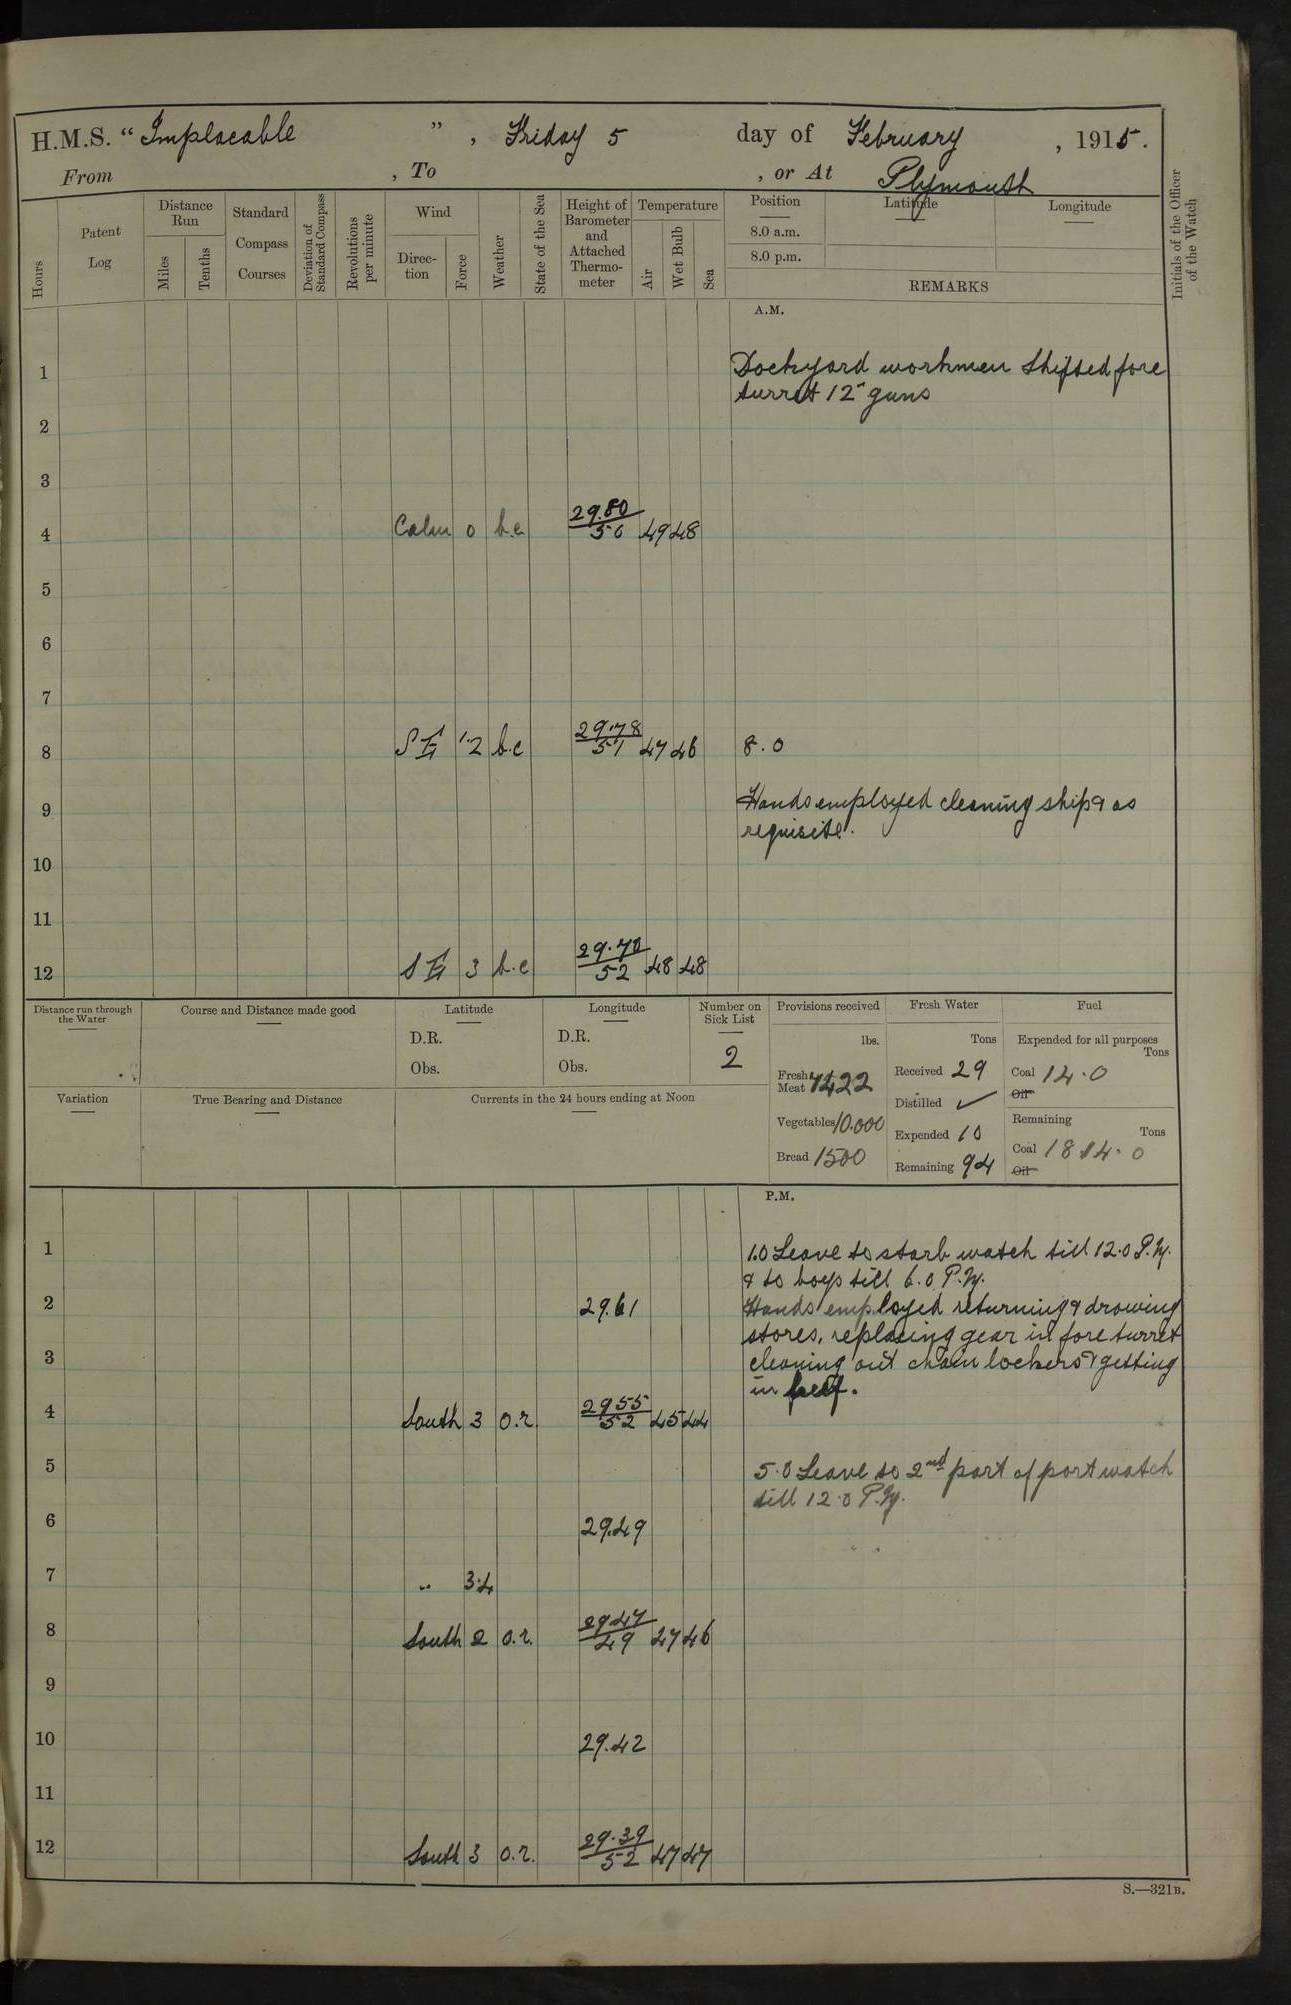 H.M.S. "Implacable", Friday 5 day of February, 1915.
From , To , or At Plymouth
Hours
Patent Log
Distance Run
Miles
Tenths
Standard Compass Courses
Deviation of Standard Compass
Revolutions per minute
Wind
Direction
Force
Weather
State of the Sea
Height of Barometer and Attached Thermometer
Temperature
Air
Wet Bulb
Sea
Position
8.0 a.m.
8.0 p.m.
Latitude
Longitude
REMARKS
Initials of the Officer of the Watch
A.M.
1 Dockyard workmen shifted fore
turret 12" guns
2
3
4 Calm 0 b.c 29.80 50 49 48
5
6
7
8 SE 1.2 b.c 29.78 51 47 46 8.0
9 Hands employed cleaning ship & as
requisite.
10
11
12 SE 3 b.c 29.70 52 48 48
Distance run through the Water
Course and Distance made good
Latitude
D.R.
Obs.
Longitude
D.R.
Obs.
Number on Sick List
2
Variation
True Bearing and Distance
Currents in the 24 hours ending at Noon
Provisions received
lbs.
Fresh Meat 7422
Vegetables 10.000
Bread 1500
Fresh Water
Tons
Received 29
Distilled ✓
Expended 10
Remaining 94
Fuel
Expended for all purposes
Tons
Coal 14.0
Oil
Remaining
Tons
Coal 1814.0
Oil
P.M.
1 1.0 Leave to starb watch till 12.0 P.M.
& to boys till 6.0 P.M.
2 29.61 Hands employed returning & drawing
stores, replacing gear in fore turret
3 cleaning out chain lockers & getting
in beef.
4 South 3 o.r. 29 55 52 45 44
5 5.0 Leave to 2nd part of port watch
till 12.0 P.M.
6 29.49
7 " 3.4
8 South 2 o.r. 29 47 49 47 46
9
10 29.42
11
12 South 3 o.r. 29.39 52 47 47
S.—321B.